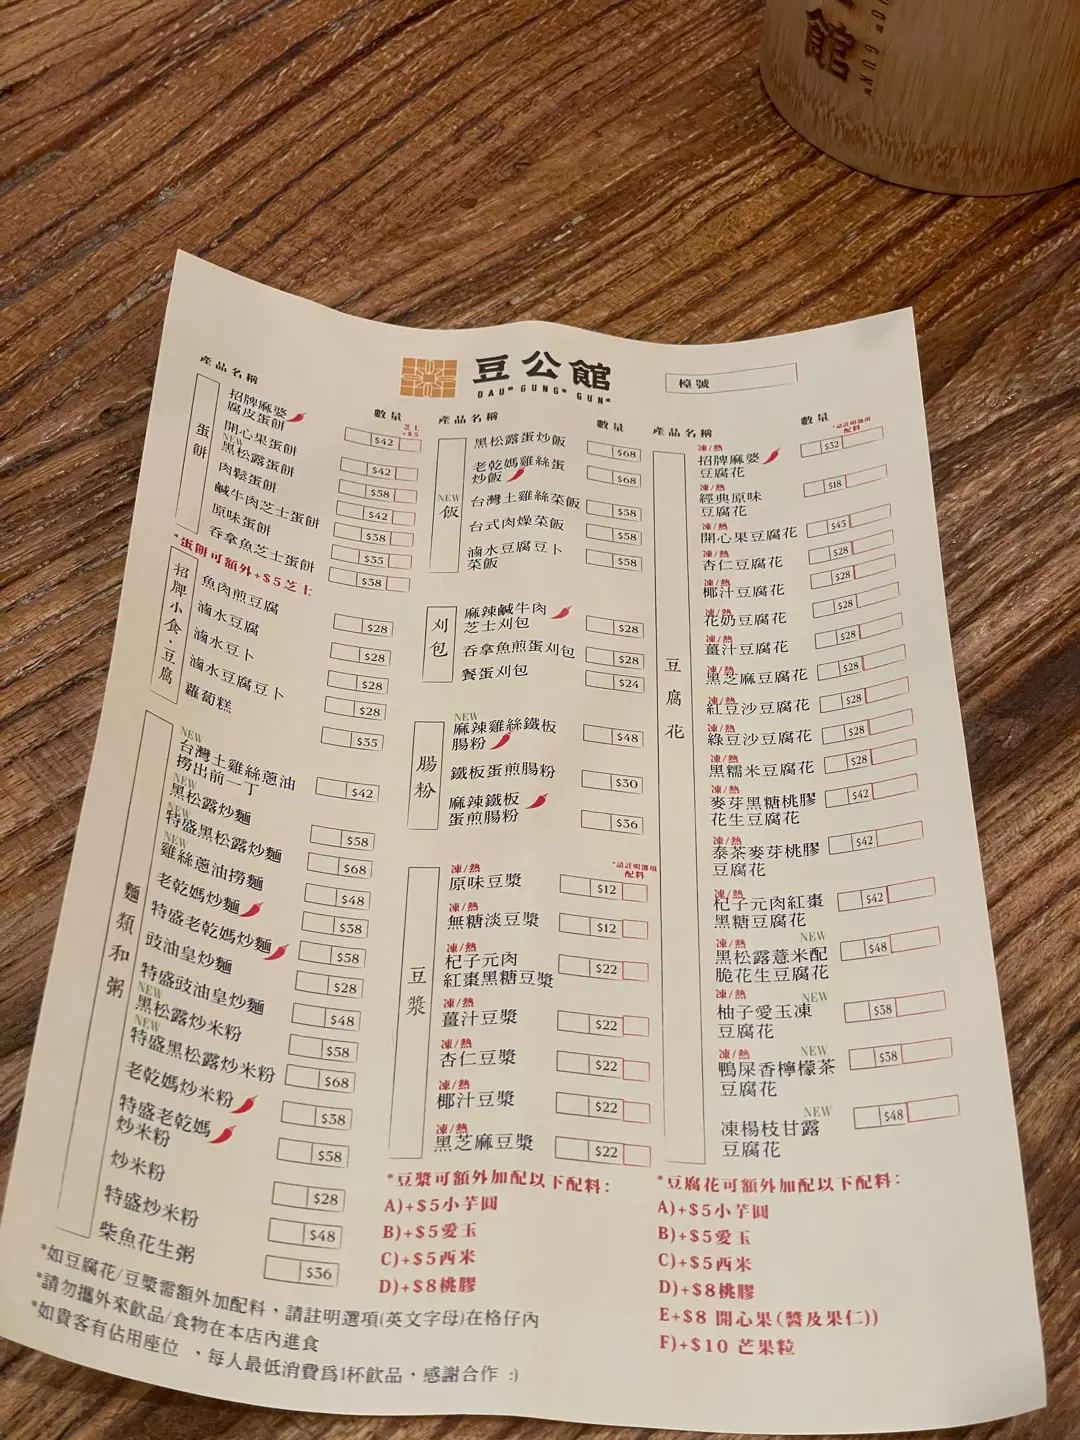 館
GUNG GUN
豆公館
DAU GUNG GUN
檯號
產品名稱
數量
芝士
+$5
蛋餅
招牌麻婆
腐皮蛋餅
$42
開心果蛋餅
$42
NEW
黑松露蛋餅
$58
肉鬆蛋餅
$42
鹹牛肉芝士蛋餅
$38
原味蛋餅
$35
吞拿魚芝士蛋餅
$38
*蛋餅可額外+$5芝士
招牌小食・豆腐
魚肉煎豆腐
$28
滷水豆腐
$28
滷水豆卜
$28
滷水豆腐豆卜
$28
蘿蔔糕
$35
麵類和粥
NEW
台灣土雞絲蔥油
撈出前一丁
$42
NEW
黑松露炒麵
$58
NEW
特盛黑松露炒麵
$68
NEW
雞絲蔥油撈麵
$48
老乾媽炒麵
$38
特盛老乾媽炒麵
$58
豉油皇炒麵
$28
特盛豉油皇炒麵
$48
NEW
黑松露炒米粉
$58
NEW
特盛黑松露炒米粉
$68
老乾媽炒米粉
$38
特盛老乾媽
炒米粉
$58
炒米粉
$28
特盛炒米粉
$48
柴魚花生粥
$36
產品名稱
數量
NEW
飯
黑松露蛋炒飯
$68
老乾媽雞絲蛋
炒飯
$68
台灣土雞絲菜飯
$58
台式肉燥菜飯
$58
滷水豆腐豆卜
菜飯
$58
刈包
麻辣鹹牛肉
芝士刈包
$28
吞拿魚煎蛋刈包
$28
餐蛋刈包
$24
腸粉
NEW
麻辣雞絲鐵板
腸粉
$48
鐵板蛋煎腸粉
$30
麻辣鐵板
蛋煎腸粉
$36
*請註明選項
配料
豆漿
凍/熱
原味豆漿
$12
凍/熱
無糖淡豆漿
$12
凍/熱
杞子元肉
紅棗黑糖豆漿
$22
凍/熱
薑汁豆漿
$22
凍/熱
杏仁豆漿
$22
凍/熱
椰汁豆漿
$22
凍/熱
黑芝麻豆漿
$22
*豆漿可額外加配以下配料:
A)+$5小芋圓
B)+$5愛玉
C)+$5西米
D)+$8桃膠
產品名稱
數量
*請註明選項
配料
豆腐花
凍/熱
招牌麻婆
豆腐花
$32
凍/熱
經典原味
豆腐花
$18
凍/熱
開心果豆腐花
$45
凍/熱
杏仁豆腐花
$28
凍/熱
椰汁豆腐花
$28
凍/熱
花奶豆腐花
$28
凍/熱
薑汁豆腐花
$28
凍/熱
黑芝麻豆腐花
$28
凍/熱
紅豆沙豆腐花
$28
凍/熱
綠豆沙豆腐花
$28
凍/熱
黑糯米豆腐花
$28
凍/熱
麥芽黑糖桃膠
花生豆腐花
$42
凍/熱
泰茶麥芽桃膠
豆腐花
$42
凍/熱
杞子元肉紅棗
黑糖豆腐花
$42
凍/熱 NEW
黑松露薏米配
脆花生豆腐花
$48
凍/熱 NEW
柚子愛玉凍
豆腐花
$38
凍/熱 NEW
鴨屎香檸檬茶
豆腐花
$38
NEW
凍楊枝甘露
豆腐花
$48
*豆腐花可額外加配以下配料:
A)+$5小芋圓
B)+$5愛玉
C)+$5西米
D)+$8桃膠
E+$8 開心果(醬及果仁))
F)+$10 芒果粒
*如豆腐花/豆漿需額外加配料，請註明選項(英文字母)在格仔內
*請勿攜外來飲品/食物在本店內進食
*如貴客有佔用座位 ，每人最低消費爲1杯飲品，感謝合作 :)